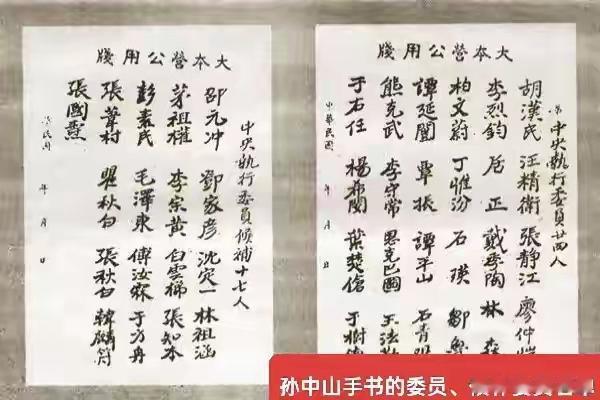 大本營公用牋
中央執行委員廿四人
胡漢民 汪精衛 張靜江 廖仲愷
李烈鈞 居正 戴季陶 林森
柏文蔚 丁惟汾 石瑛 鄒魯
譚延闓 覃振 譚平山 石青
熊克武 李守常 恩克巴圖 王法
于右任 楊希閔 葉楚傖 于樹
中華民國 年 月 日
大本營公用牋
中央執行委員候補十七人
邵元冲 鄧家彥 沈定一 林祖涵
茅祖權 李宗黃 白雲梯 張知本
彭素民 毛澤東 傅汝霖 于方舟
張葦村 瞿秋白 張秋白 韓麟符
張國燾
民國 年 月 日
孙中山手书的委员、候补委员名单